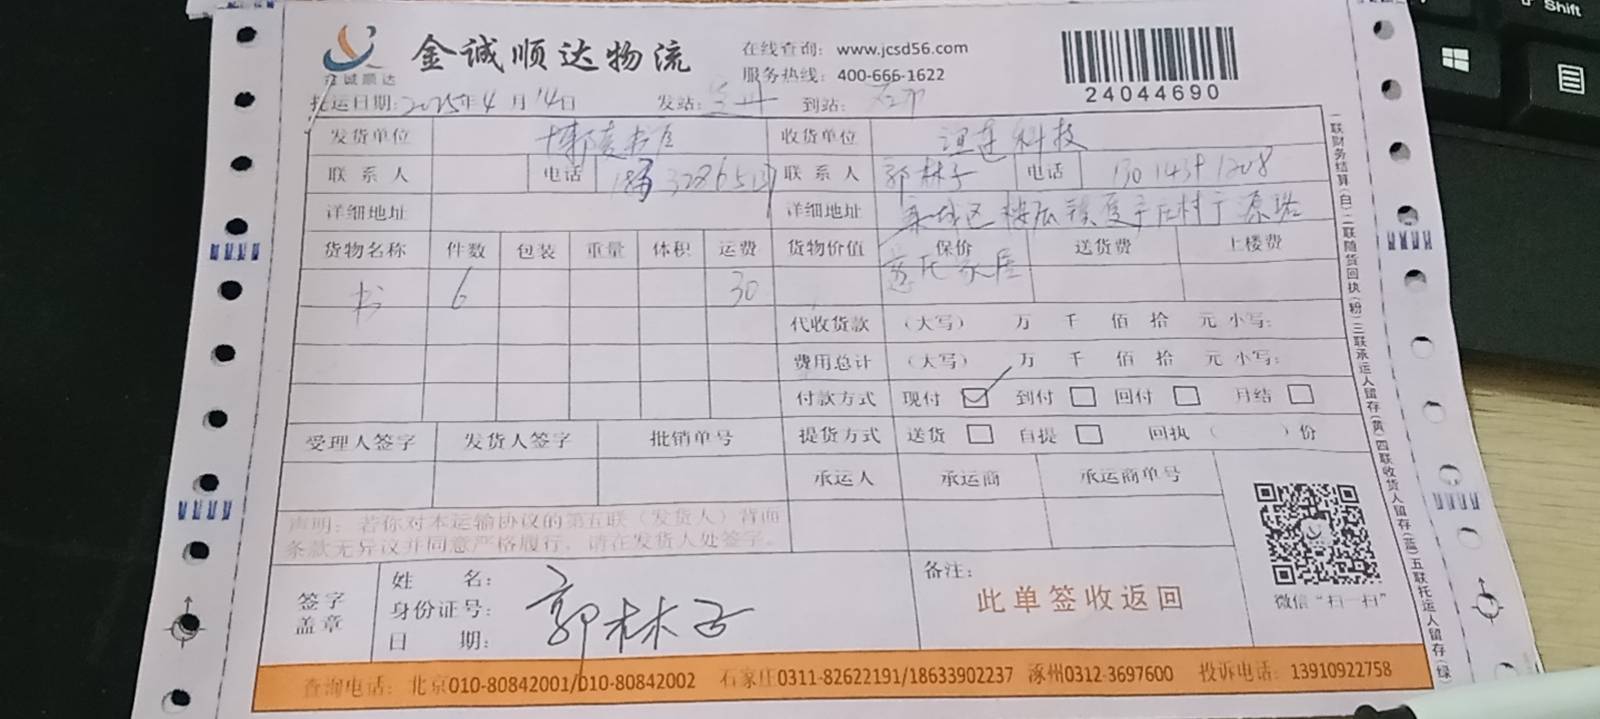 金诚顺达物流
在线查询：www.jcsd56.com
服务热线：400-666-1622
24044690
金诚顺达
托运日期：2025年4月14日 发站： 到站：
发货单位 收货单位 科技
联系人 电话 联系人 郭林子 电话
详细地址 详细地址
货物名称 件数 包装 重量 体积 运费 货物价值 保价 送货费 上楼费
书 6 30
代收货款 （大写） 万 千 佰 拾 元 小写：
费用总计 （大写） 万 千 佰 拾 元 小写：
付款方式 现付 到付 回付 月结
受理人签字 发货人签字 批销单号 提货方式 送货 自提 回执（ ）份
承运人 承运商 承运商单号
声明：若你对本运输协议的第五联（发货人）背面
条款无异议并同意严格履行，请在发货人处签字。
签字
盖章
姓 名：
身份证号：
日 期：
郭林子
备注：
此单签收返回
微信“扫一扫”
查询电话：北京010-80842001/010-80842002 石家庄0311-82622191/18633902237 涿州0312-3697600 投诉电话：13910922758
一联财务结算（白）二联随货回执（粉）三联承运人留存（黄）四联收货人留存（蓝）五联托运人留存（绿）
Shift